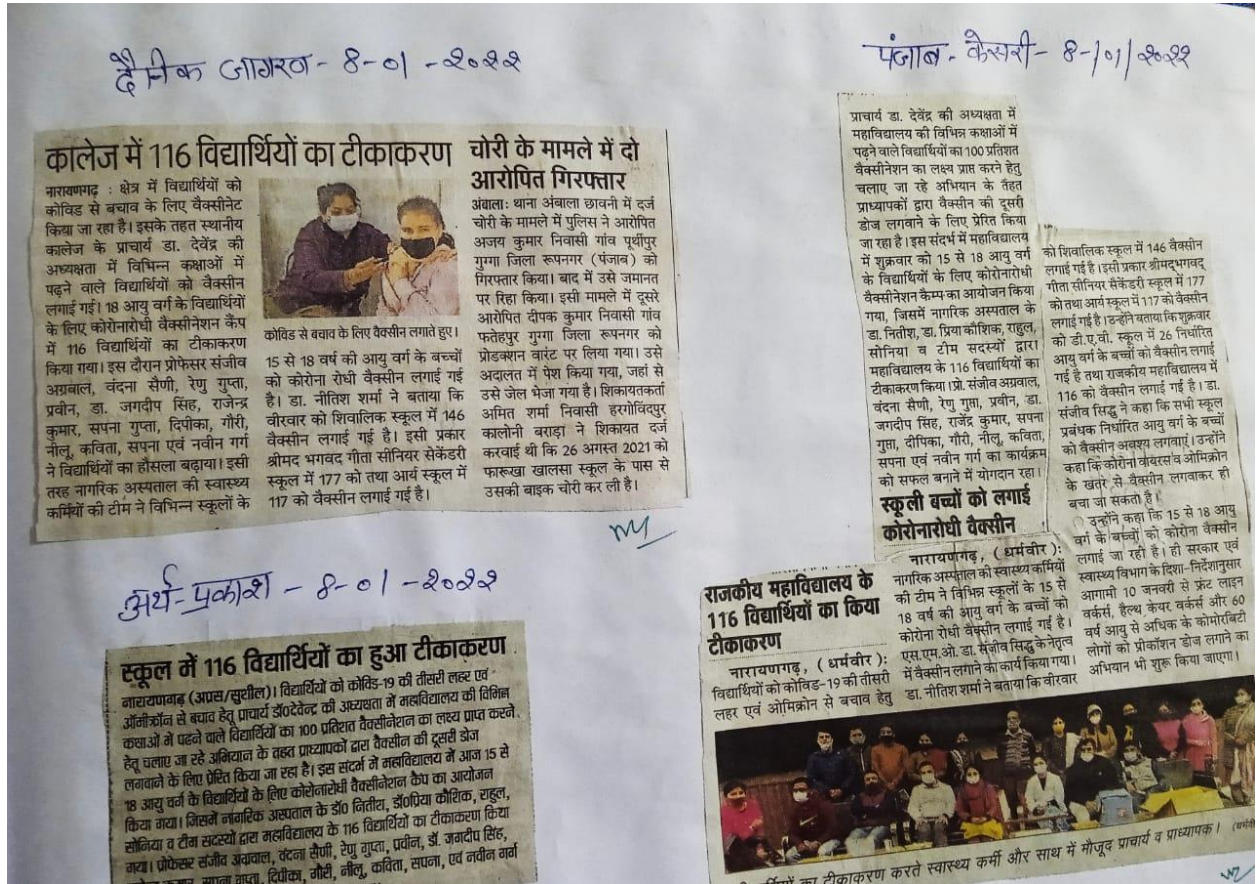 दैनिक जागरण - 8-01-२०२२
कालेज में 116 विद्यार्थियों का टीकाकरण
नारायणगढ़ : क्षेत्र में विद्यार्थियों को
कोविड से बचाव के लिए वैक्सीनेट
किया जा रहा है। इसके तहत स्थानीय
कालेज के प्राचार्य डा. देवेंद्र की
अध्यक्षता में विभिन्न कक्षाओं में
पढ़ने वाले विद्यार्थियों को वैक्सीन
लगाई गई। 18 आयु वर्ग के विद्यार्थियों
के लिए कोरोनारोधी वैक्सीनेशन कैंप
में 116 विद्यार्थियों का टीकाकरण
किया गया। इस दौरान प्रोफेसर संजीव
अग्रबाल, वंदना सैणी, रेणु गुप्ता,
प्रवीन, डा. जगदीप सिंह, राजेन्द्र
कुमार, सपना गुप्ता, दिपीका, गौरी,
नीलू, कविता, सपना एवं नवीन गर्ग
ने विद्यार्थियों का हौसला बढ़ाया। इसी
तरह नागरिक अस्पताल की स्वास्थ्य
कर्मियों की टीम ने विभिन्न स्कूलों के
कोविड से बचाव के लिए वैक्सीन लगाते हुए।
15 से 18 वर्ष की आयु वर्ग के बच्चों
को कोरोना रोधी वैक्सीन लगाई गई
है। डा. नीतिश शर्मा ने बताया कि
वीरवार को शिवालिक स्कूल में 146
वैक्सीन लगाई गई है। इसी प्रकार
श्रीमद भगवद गीता सीनियर सेकेंडरी
स्कूल में 177 को तथा आर्य स्कूल में
117 को वैक्सीन लगाई गई है।
चोरी के मामले में दो
आरोपित गिरफ्तार
अंबाला: थाना अंबाला छावनी में दर्ज
चोरी के मामले में पुलिस ने आरोपित
अजय कुमार निवासी गांव पूर्थीपुर
गुग्गा जिला रूपनगर (पंजाब) को
गिरफ्तार किया। बाद में उसे जमानत
पर रिहा किया। इसी मामले में दूसरे
आरोपित दीपक कुमार निवासी गांव
फतेहपुर गुग्गा जिला रूपनगर को
प्रोडक्शन वारंट पर लिया गया। उसे
अदालत में पेश किया गया, जहां से
उसे जेल भेजा गया है। शिकायतकर्ता
अमित शर्मा निवासी हरगोविंदपुर
कालोनी बराड़ा ने शिकायत दर्ज
करवाई थी कि 26 अगस्त 2021 को
फारूखा खालसा स्कूल के पास से
उसकी बाइक चोरी कर ली है।
अर्थ-प्रकाश - 8-01-२०२२
स्कूल में 116 विद्यार्थियों का हुआ टीकाकरण
नारायणगढ़ (अप्रस/सुशील)। विद्यार्थियों को कोविड-19 की तीसरी लहर एवं
ऑमीक्रॉन से बचाव हेतू प्राचार्य डॉ0देवेन्द्र की अध्यक्षता में महाविद्यालय की विभिन्न
कक्षाओं में पढने वाले विद्यार्थियों का 100 प्रतिशत वैक्सीनेशन का लक्ष्य प्राप्त करने
हेतू चलाए जा रहे अभियान के तहत प्राध्यापकों द्वारा वैक्सीन की दूसरी डोज
लगवाने के लिए प्रेरित किया जा रहा है। इस संदर्भ में महाविद्यालय में आज 15 से
18 आयु वर्ग के विद्यार्थियों के लिए कोरोनारोधी वैक्सीनेशन कैंप का आयोजन
किया गया। जिसमें नागरिक अस्पताल के डॉ0 नितीश, डॉ0प्रिया कौशिक, राहुल,
सोनिया व टीम सदस्यों द्वारा महाविद्यालय के 116 विद्यार्थियों का टीकाकरण किया
गया। प्रोफेसर संजीव अग्रवाल, वंदना सैणी, रेणु गुप्ता, प्रवीन, डॉ. जगदीप सिंह,
कुमार, सपना गुप्ता, दिपीका, गौरी, नीलू, कविता, सपना, एवं नवीन गर्ग
पंजाब-केसरी- 8-/01/२०२२
राजकीय महाविद्यालय के
116 विद्यार्थियों का किया
टीकाकरण
नारायणगढ़, (धर्मवीर):
विद्यार्थियों को कोविड-19 की तीसरी
लहर एवं ओमिक्रोन से बचाव हेतु
प्राचार्य डा. देवेंद्र की अध्यक्षता में
महाविद्यालय की विभिन्न कक्षाओं में
पढ़ने वाले विद्यार्थियों का 100 प्रतिशत
वैक्सीनेशन का लक्ष्य प्राप्त करने हेतु
चलाए जा रहे अभियान के तैहत
प्राध्यापकों द्वारा वैक्सीन की दूसरी
डोज लगवाने के लिए प्रेरित किया
जा रहा है। इस संदर्भ में महाविद्यालय
में शुक्रवार को 15 से 18 आयु वर्ग
के विद्यार्थियों के लिए कोरोनारोधी
वैक्सीनेशन कैम्प का आयोजन किया
गया, जिसमें नागरिक अस्पताल के
डा. नितीश, डा. प्रिया कौशिक, राहुल,
सोनिया व टीम सदस्यों द्वारा
महाविद्यालय के 116 विद्यार्थियों का
टीकाकरण किया। प्रो. संजीव अग्रवाल,
वंदना सैणी, रेणु गुप्ता, प्रवीन, डा.
जगदीप सिंह, राजेंद्र कुमार, सपना
गुप्ता, दीपिका, गौरी, नीलू, कविता,
सपना एवं नवीन गर्ग का कार्यक्रम
को सफल बनाने में योगदान रहा।
स्कूली बच्चों को लगाई
कोरोनारोधी वैक्सीन
नारायणगढ़, (धर्मवीर):
नागरिक अस्पताल की स्वास्थ्य कर्मियों
की टीम ने विभिन्न स्कूलों के 15 से
18 वर्ष की आयु वर्ग के बच्चों को
कोरोना रोधी वैक्सीन लगाई गई है।
एस.एम.ओ. डा. संजीव सिद्धु के नेतृत्व
में वैक्सीन लगाने का कार्य किया गया।
डा. नीतिश शर्मा ने बताया कि वीरवार
को शिवालिक स्कूल में 146 वैक्सीन
लगाई गई है। इसी प्रकार श्रीमद्भगवद्
गीता सीनियर सैकेंडरी स्कूल में 177
को तथा आर्य स्कूल में 117 को वैक्सीन
लगाई गई है। उन्होंने बताया कि शुक्रवार
को डी.ए.वी. स्कूल में 26 निर्धारित
आयु वर्ग के बच्चों को वैक्सीन लगाई
गई है तथा राजकीय महाविद्यालय में
116 को वैक्सीन लगाई गई है। डा.
संजीव सिद्धु ने कहा कि सभी स्कूल
प्रबंधक निर्धारित आयु वर्ग के बच्चों
को वैक्सीन अवश्य लगवाएं। उन्होंने
कहा कि कोरोना वायरस व ओमिक्रोन
के खतरे से वैक्सीन लगवाकर ही
बचा जा सकता है।
उन्होंने कहा कि 15 से 18 आयु
वर्ग के बच्चों को कोरोना वैक्सीन
लगाई जा रही है। ही सरकार एवं
स्वास्थ्य विभाग के दिशा-निर्देशानुसार
आगामी 10 जनवरी से फ्रंट लाइन
वर्कर्स, हैल्थ केयर वर्कर्स और 60
वर्ष आयु से अधिक के कोमोरबिटी
लोगों को प्रीकॉशन डोज लगाने का
अभियान भी शुरू किया जाएगा।
का टीकाकरण करते स्वास्थ्य कर्मी और साथ में मौजूद प्राचार्य व प्राध्यापक।